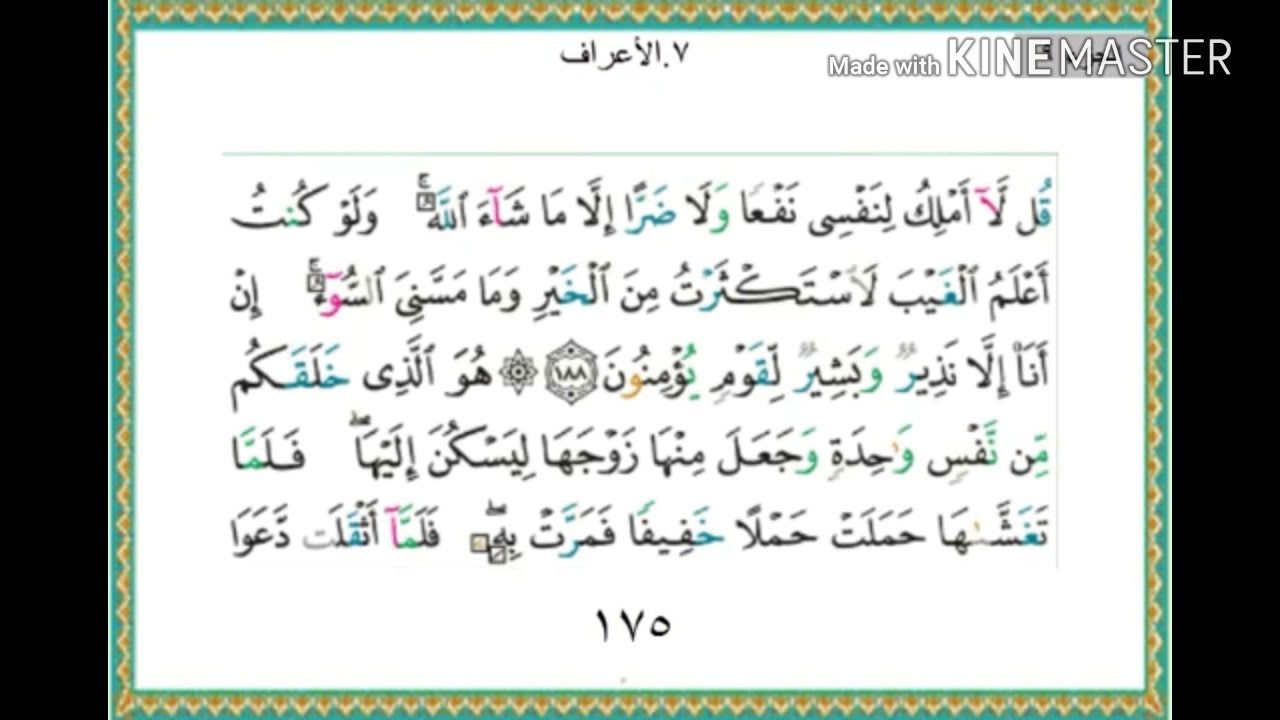 ٧.الأعراف
Made with KINEMASTER
قُل لَّآ أَمْلِكُ لِنَفْسِى نَفْعًا وَلَا ضَرًّا إِلَّا مَا شَآءَ ٱللَّهُ ۚ وَلَوْ كُنتُ
أَعْلَمُ ٱلْغَيْبَ لَٱسْتَكْثَرْتُ مِنَ ٱلْخَيْرِ وَمَا مَسَّنِىَ ٱلسُّوٓءُ ۚ إِنْ
أَنَا۠ إِلَّا نَذِيرٌ وَبَشِيرٌ لِّقَوْمٍ يُؤْمِنُونَ ١٨٨ ۞ هُوَ ٱلَّذِى خَلَقَكُم
مِّن نَّفْسٍ وَٰحِدَةٍ وَجَعَلَ مِنْهَا زَوْجَهَا لِيَسْكُنَ إِلَيْهَا ۖ فَلَمَّا
تَغَشَّىٰهَا حَمَلَتْ حَمْلًا خَفِيفًا فَمَرَّتْ بِهِۦ ۖ فَلَمَّآ أَثْقَلَت دَّعَوَا
١٧٥